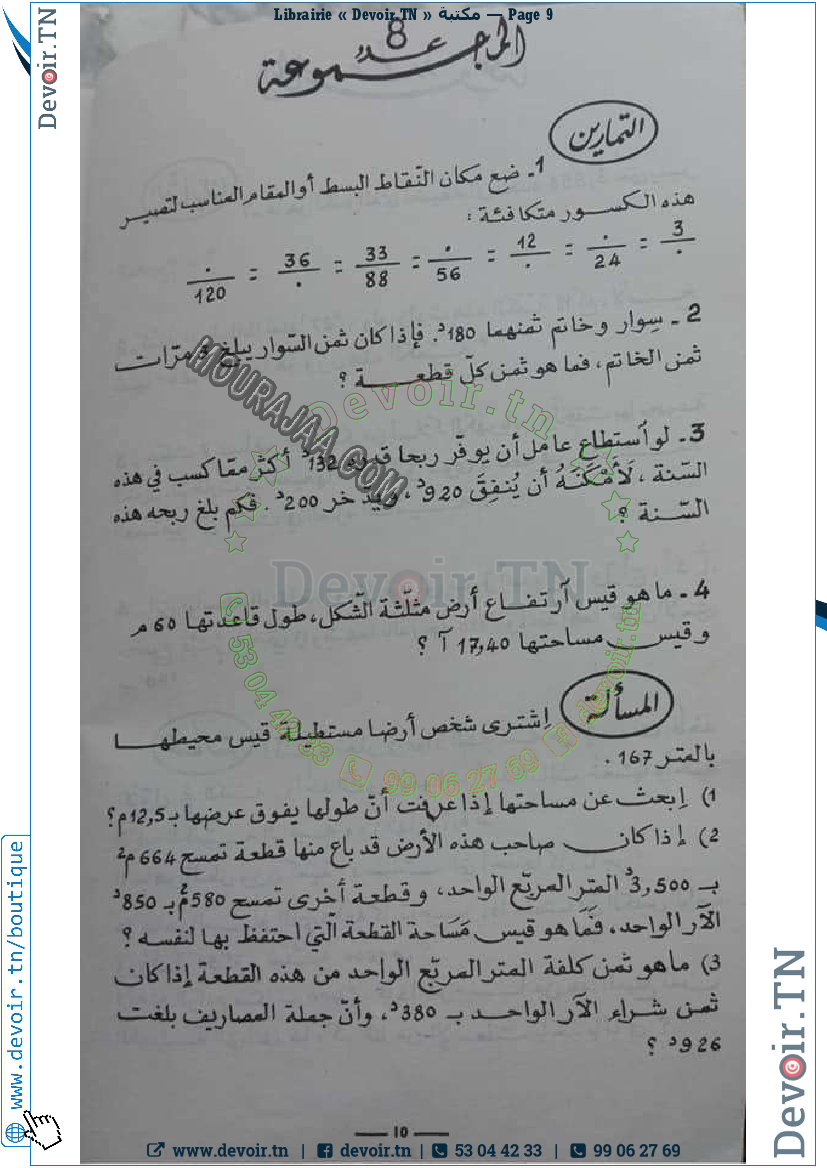 Librairie « Devoir.TN » مكتبة — Page 9
Devoir.TN
المجموعة عدد 8
التمارين
1 - ضع مكان النّقاط البسط أو المقام المناسب لتصير
هذه الكسور متكافئة :
3/. = ./24 = 12/. = ./56 = 33/88 = 36/. = ./120
2 - سِوار وخاتم ثمنهما 180د. فإذا كان ثمن السّوار يبلغ مرّات
ثمن الخاتم، فما هو ثمن كلّ قطعة ؟
MOURAJAA.COM
Devoir.tn
3 - لو اُستطاع عامل أن يوفّر ربحا قدره 132د أكثر ممّا كسب في هذه
السّنة، لَأَمْكَنَهُ أن يُنفِقَ 920د، ويدّخر 200د. فكم بلغ ربحه هذه
السّنة ؟
Devoir.TN
4 - ما هو قيس اَرتفاع أرض مثلّثة الشّكل، طول قاعدتها 60 م
وقيس مساحتها 17,40 آ ؟
53 04 42 33 99 06 27 69 Devoir.tn
المسألة
اِشترى شخص أرضا مستطيلة قيس محيطها
بالمتر 167 .
1) اِبحث عن مساحتها إذا عرفت أنّ طولها يفوق عرضها بـ 12,5م؟
2) إذا كان صاحب هذه الأرض قد باع منها قطعة تمسح 664م²
بـ 3,500د المتر المربّع الواحد، وقطعة أخرى تمسح 580م² بـ 850د
الآر الواحد، فَمَا هو قيس مَسَاحة القطعة الّتي احتفظ بها لنفسه ؟
3) ما هو ثمن كلفة المتر المربّع الواحد من هذه القطعة إذا كان
ثمن شراء الآر الواحد بـ 380د، وأنّ جملة المصاريف بلغت
926د ؟
10
www.devoir.tn/boutique
Devoir.TN
www.devoir.tn | devoir.tn | 53 04 42 33 | 99 06 27 69